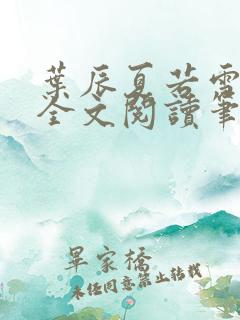 葉辰夏若雪
全文閱讀筆
畢家橋
未經同意禁止轉載